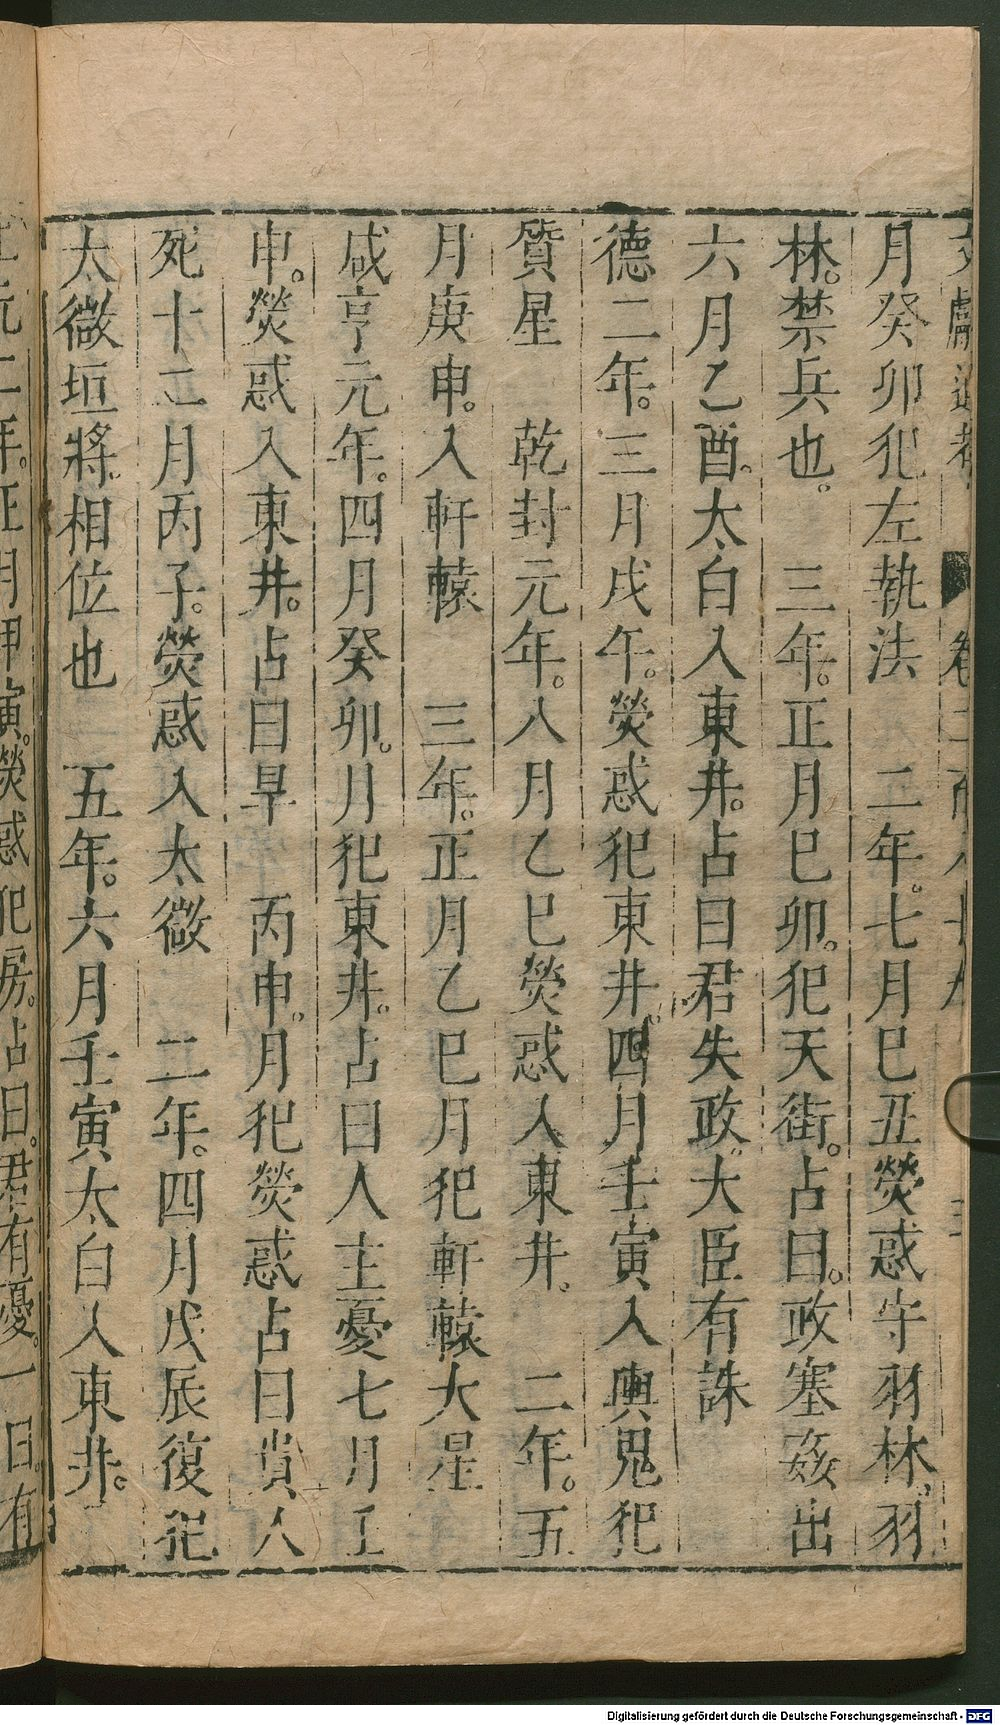 月癸卯犯左執法　二年。七月巳丑熒惑守羽林、羽
林。禁兵也。　三年。正月巳卯。犯天街。占曰。政塞姦出
六月乙酉。太白入東井。占曰君失政。大臣有誅
德二年。三月戌午。熒惑犯東井。四月壬寅入輿鬼犯
質星　乾封元年。八月乙巳熒惑入東井。　二年。五
月庚申。入軒轅　三年。正月乙巳月犯軒轅大星
咸亨元年。四月癸卯。月犯東井。占曰人主憂七月
申。熒惑入東井。占曰旱　丙申。月犯熒惑占曰貴人
死十二月丙子。熒惑入太微　二年。四月戊辰復犯
太微垣將相位也　五年。六月壬寅太白入東井。
元二年。正月甲寅。熒惑犯房。占曰。君有憂。一曰。有
Digitalisierung gefördert durch die Deutsche Forschungsgemeinschaft - DFG